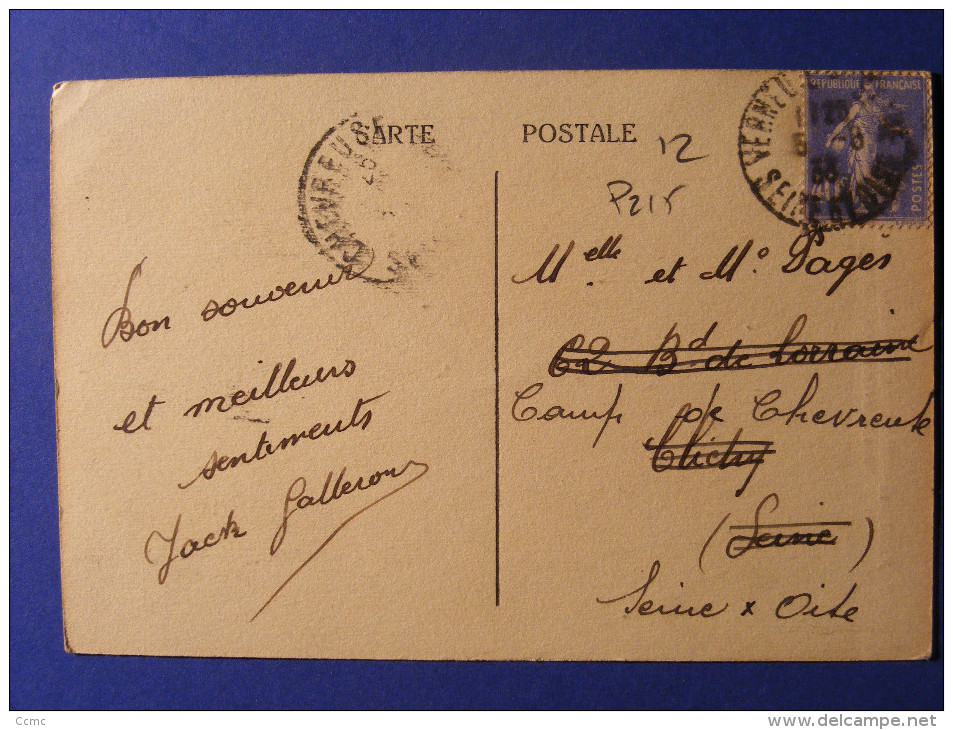 CARTE POSTALE
CHEVREUSE
VERNEU
SEINE
REPUBLIQUE FRANÇAISE
POSTES
12
P215
Bon souvenir
et meilleurs
sentiments
Jack Galleron
Melle et Mr Pagès
62 Bd de Lorraine
Camp de Chevreuse
Clichy
(Seine)
Seine x Oise
Ccmc
www.delcampe.net